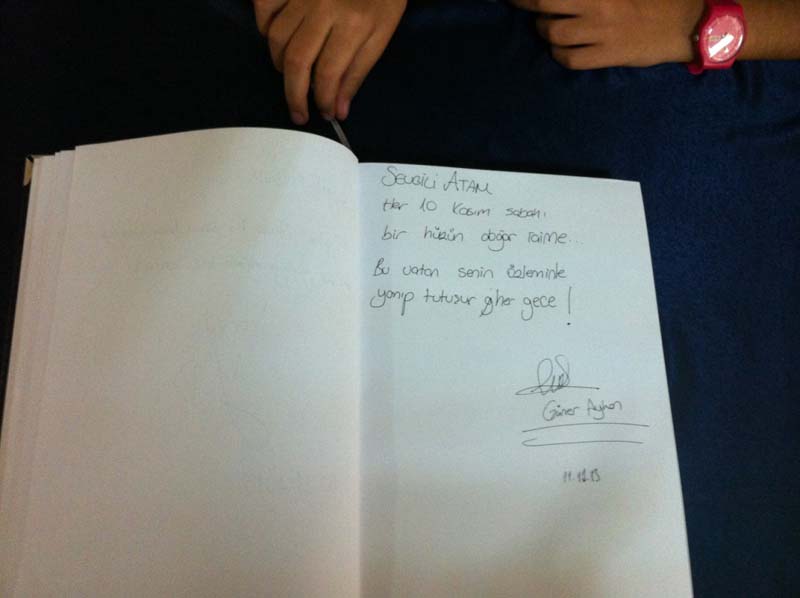 SEVGİLİ ATAM
Her 10 Kasım sabahı
bir hüzün doğar içime...
Bu vatan senin özleminle
yanıp tutuşur her gece!
Güner Ayhan